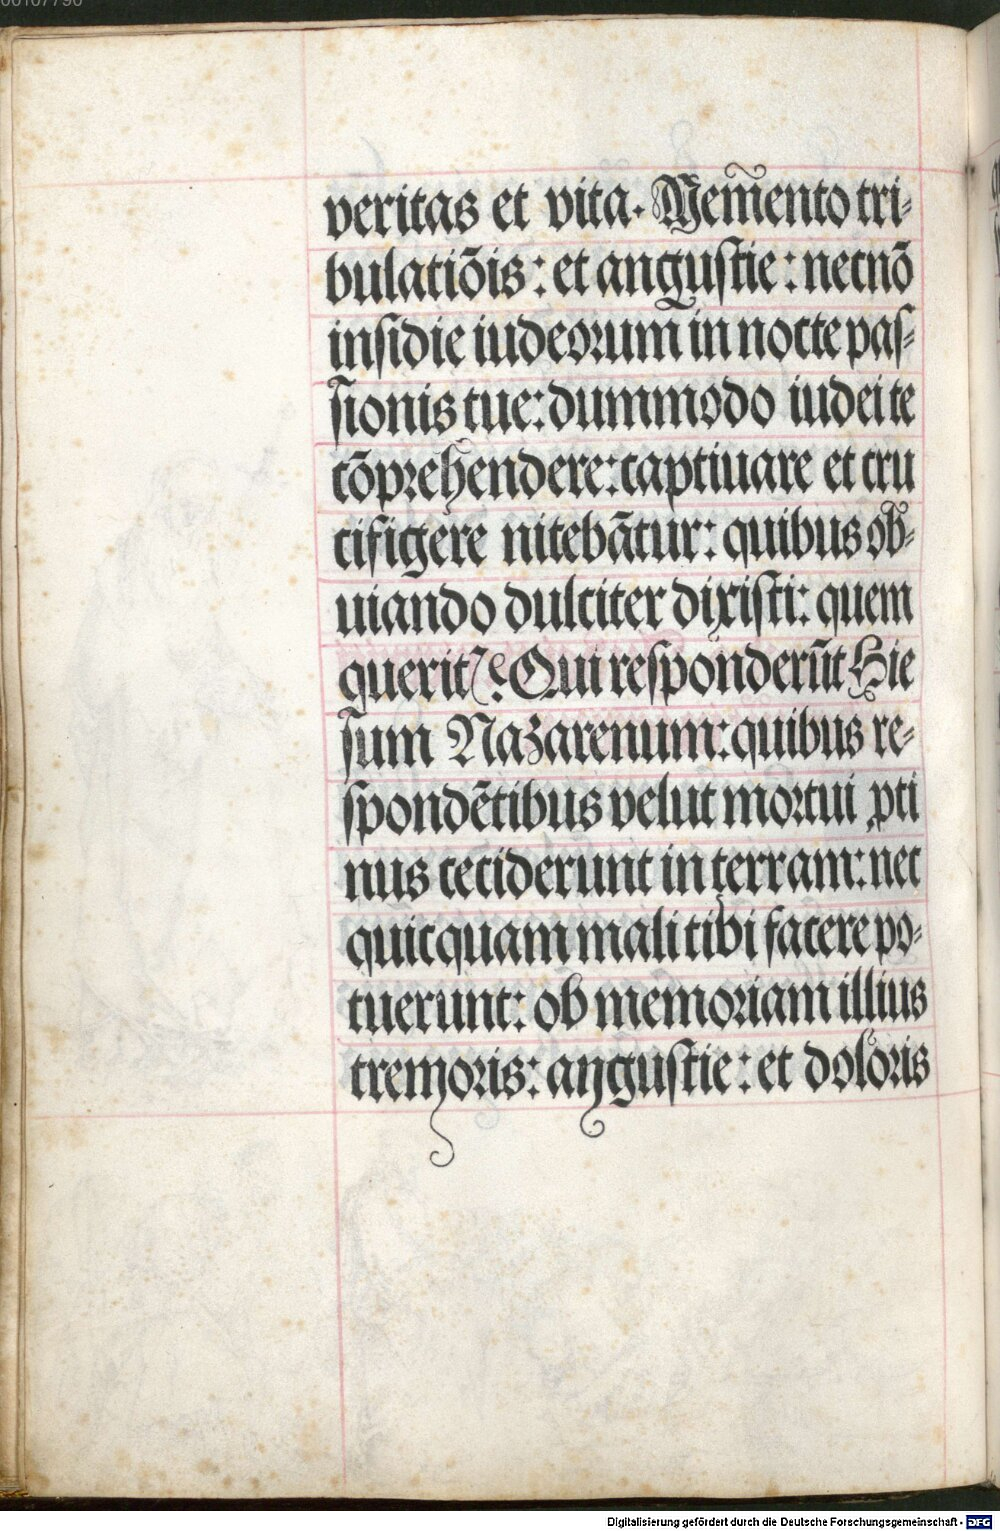 00107790
veritas et vita. Mem̃ento tri-
bulatiōis: et angustie: necnō
insidie iudeorum in nocte pas-
sionis tue: dummodo iudei te
cōprehendere: captiuare et cru
cifigere nitebātur: quibus ob-
uiando dulciter dixisti: quem
queritꝭ. Qui responderūt Hie
sum Nazarenum: quibus re-
spondētibus velut mortui ꝓti
nus ceciderunt in terram: nec
quicquam mali tibi facere po-
tuerunt: ob memoriam illius
tremoris: angustie: et doloris
Digitalisierung gefördert durch die Deutsche Forschungsgemeinschaft - DFG